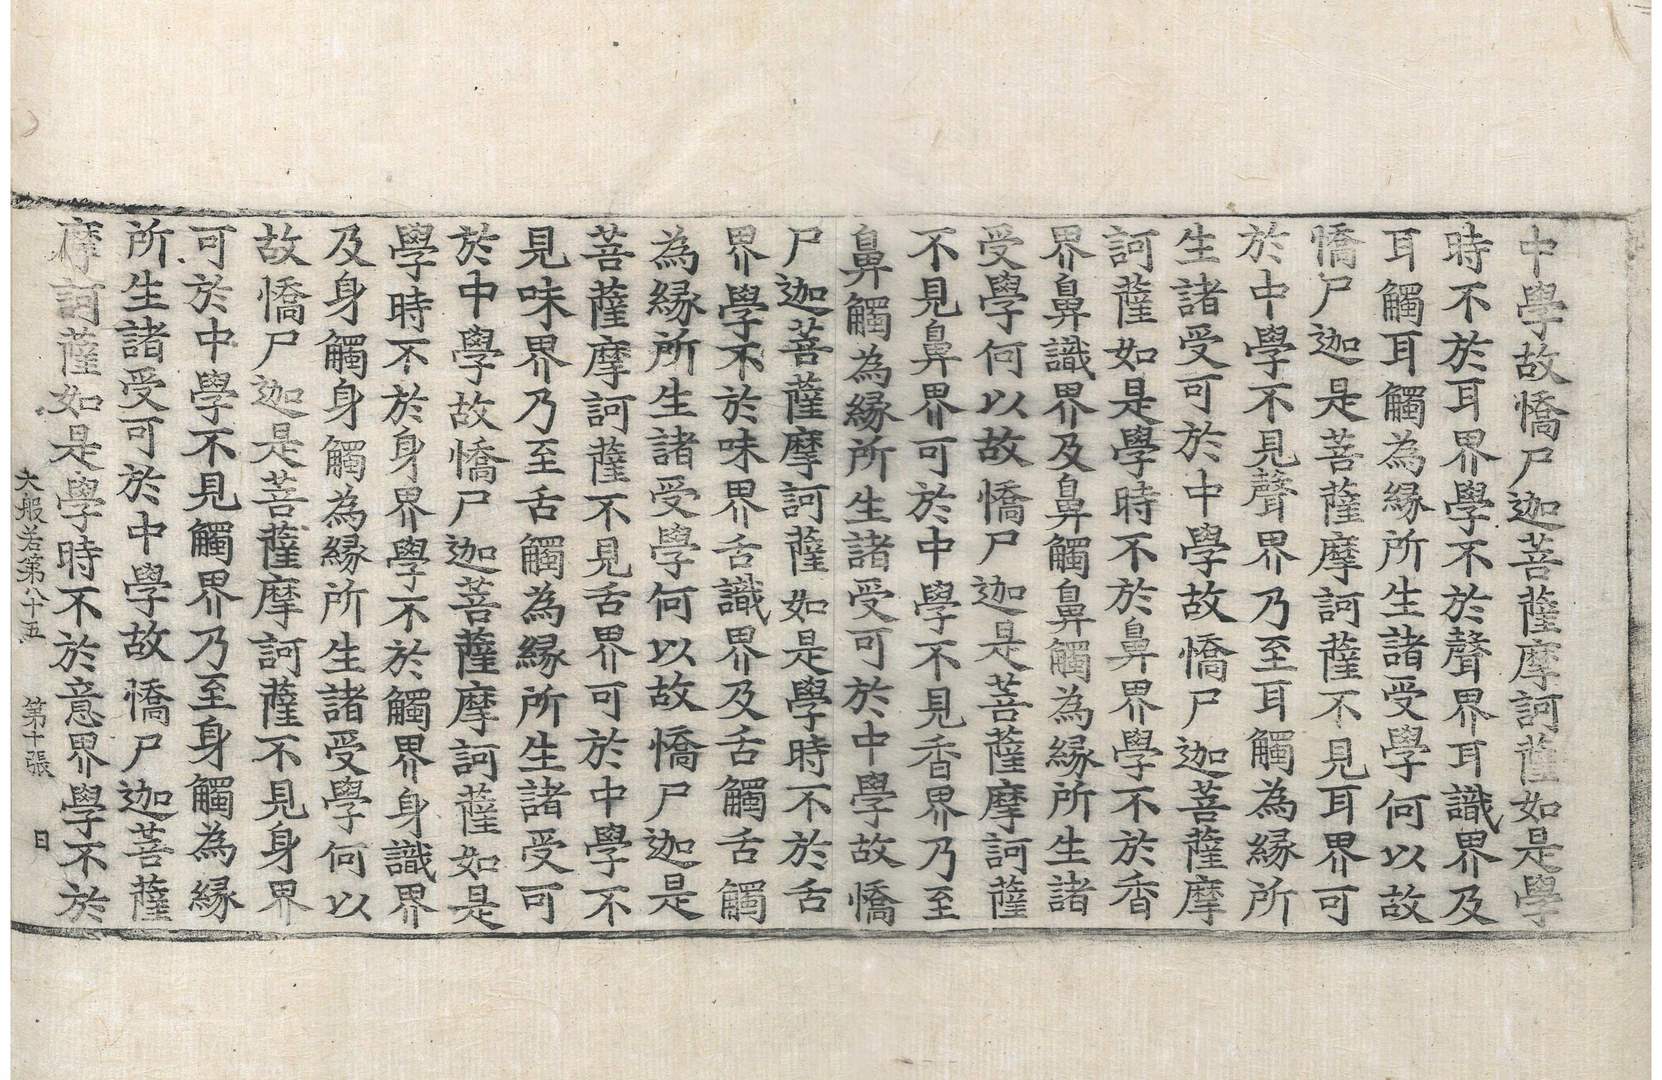 中學故憍尸迦菩薩摩訶薩如是學
時不於耳界學不於聲界耳識界及
耳觸耳觸為縁所生諸受學何以故
憍尸迦是菩薩摩訶薩不見耳界可
於中學不見聲界乃至耳觸為縁所
生諸受可於中學故憍尸迦菩薩摩
訶薩如是學時不於鼻界學不於香
界鼻識界及鼻觸鼻觸為縁所生諸
受學何以故憍尸迦是菩薩摩訶薩
不見鼻界可於中學不見香界乃至
鼻觸為縁所生諸受可於中學故憍
尸迦菩薩摩訶薩如是學時不於舌
界學不於味界舌識界及舌觸舌觸
為縁所生諸受學何以故憍尸迦是
菩薩摩訶薩不見舌界可於中學不
見味界乃至舌觸為縁所生諸受可
於中學故憍尸迦菩薩摩訶薩如是
學時不於身界學不於觸界身識界
及身觸身觸為縁所生諸受學何以
故憍尸迦是菩薩摩訶薩不見身界
可於中學不見觸界乃至身觸為縁
所生諸受可於中學故憍尸迦菩薩
摩訶薩如是學時不於意界學不於
大般若第八十五 第十張 日